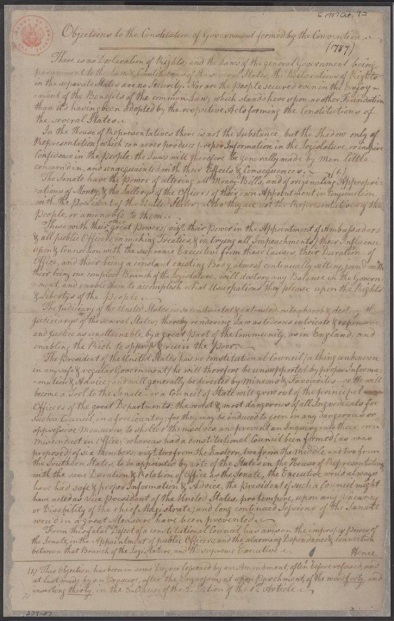 Objections to the Constitution of Government formed by the Convention.
(1787)
There is no Declaration of Rights; and the Laws of the general Government being
paramount to the Laws & Constitutions of the several States, the Declarations of Rights
in the separate States are no Security. Nor are the People secured even in the Enjoy-
ment of the Benefits of the common Law, which stands here upon no other Foundation
than its having been adopted by the respective Acts forming the Constitutions of
the several States.
In the House of Representatives there is not the Substance, but the Shadow only of
Representation; which can never produce proper Information in the Legislature, or inspire
Confidence in the People: the Laws will therefore be generally made by Men little
concern'd in, and unacquainted with their Effects & Consequences.
The Senate have the Power of altering all Money-Bills, and of originating Appropri-
ations of Money, & the Sallerys of the Officers of their own Appointment in Conjunction
with the President of the United States; altho' they are not the Representatives of the
People, or amenable to them.
These with their other great Powers
in the Appointment of Ambassadors
& all public Officers, in making Treaties, & in trying all Impeachments) their Influence
upon & Connection with the supreme Executive from these Causes, their Duration of
Office, and their being a constant existing Body almost continually sitting, joined with
their being one compleat Branch of the Legislature, will destroy any Balance in the Govern-
ment, and enable them to accomplish what Usurpations they please upon the Rights
& Libertys of the People.
The Judiciary of the United States is so constructed & extended, as to absorb & destroy
the Judiciarys of the several States; thereby rendering Law as tedious, intricate & expensive,
and Justice as unattainable, by a great Part of the Community, as in England, and
enabling the Rich to oppress & ruin the Poor.
The President of the United States has no constitutional Council (a thing unknown
in any safe & regular Government) he will therefore be unsupported by proper Informa-
tion & Advice; and will generally be directed by Minions & Favourites—or he will
become a Tool to the Senate—or a Council of State will grow out of the principal
Officers of the great Departments; the worst & most dangerous of all Ingredients for
such a Council in a free Country; for they may be induced to join in any dangerous or
oppressive Measures, to shelter themselves, and prevent an Inquiry into their own
Misconduct in Office; whereas had a constitutional Council been formed (as was
proposed) of six Members, viz. two from the Eastern, two from the Middle, and two from the
Southern States, to be appointed by Vote of the States in the House of Representatives,
with the same Duration & Rotation of Office as the Senate, the Executive wou'd always
have had safe & proper Information & Advice, the President of such a Council might
have acted as Vice President of the United States, pro tempore, upon any Vacancy
or Disability of the chief Magistrate; and long continued Sessions of the Senate
wou'd in a great Measure have been prevented.
From this fatal Defect of a constitutional Council has arisen the improper Power of
the Senate, in the Appointment of public Officers, and the alarming Dependance & Connection
between that Branch of the Legislature, and the supreme Executive.
Hence
This Objection has been in some Degree lessened by an Amendment, often before refused, and
at last made by an Erasure, after the Engrossment upon Parchment, of the word forty, and
inserting thirty, in the 3d Clause of the 2d Section of the 1st Article.